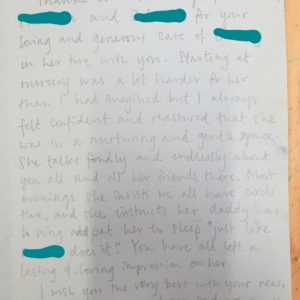 and for your
loving and generous care of
in her time with you. Starting at
nursery was a lot harder for her
than I had imagined but I always
felt confident and reassured that she
was in a nurturing and gentle space.
She talks fondly and endlessly about
you all and all her friends there. Most
evenings she insists we all have circle
time, and she instructs her daddy how
to sing and pat her to sleep "just like
does it!" You have all left a
lasting & loving impression on her.
I wish you the very best with your new,